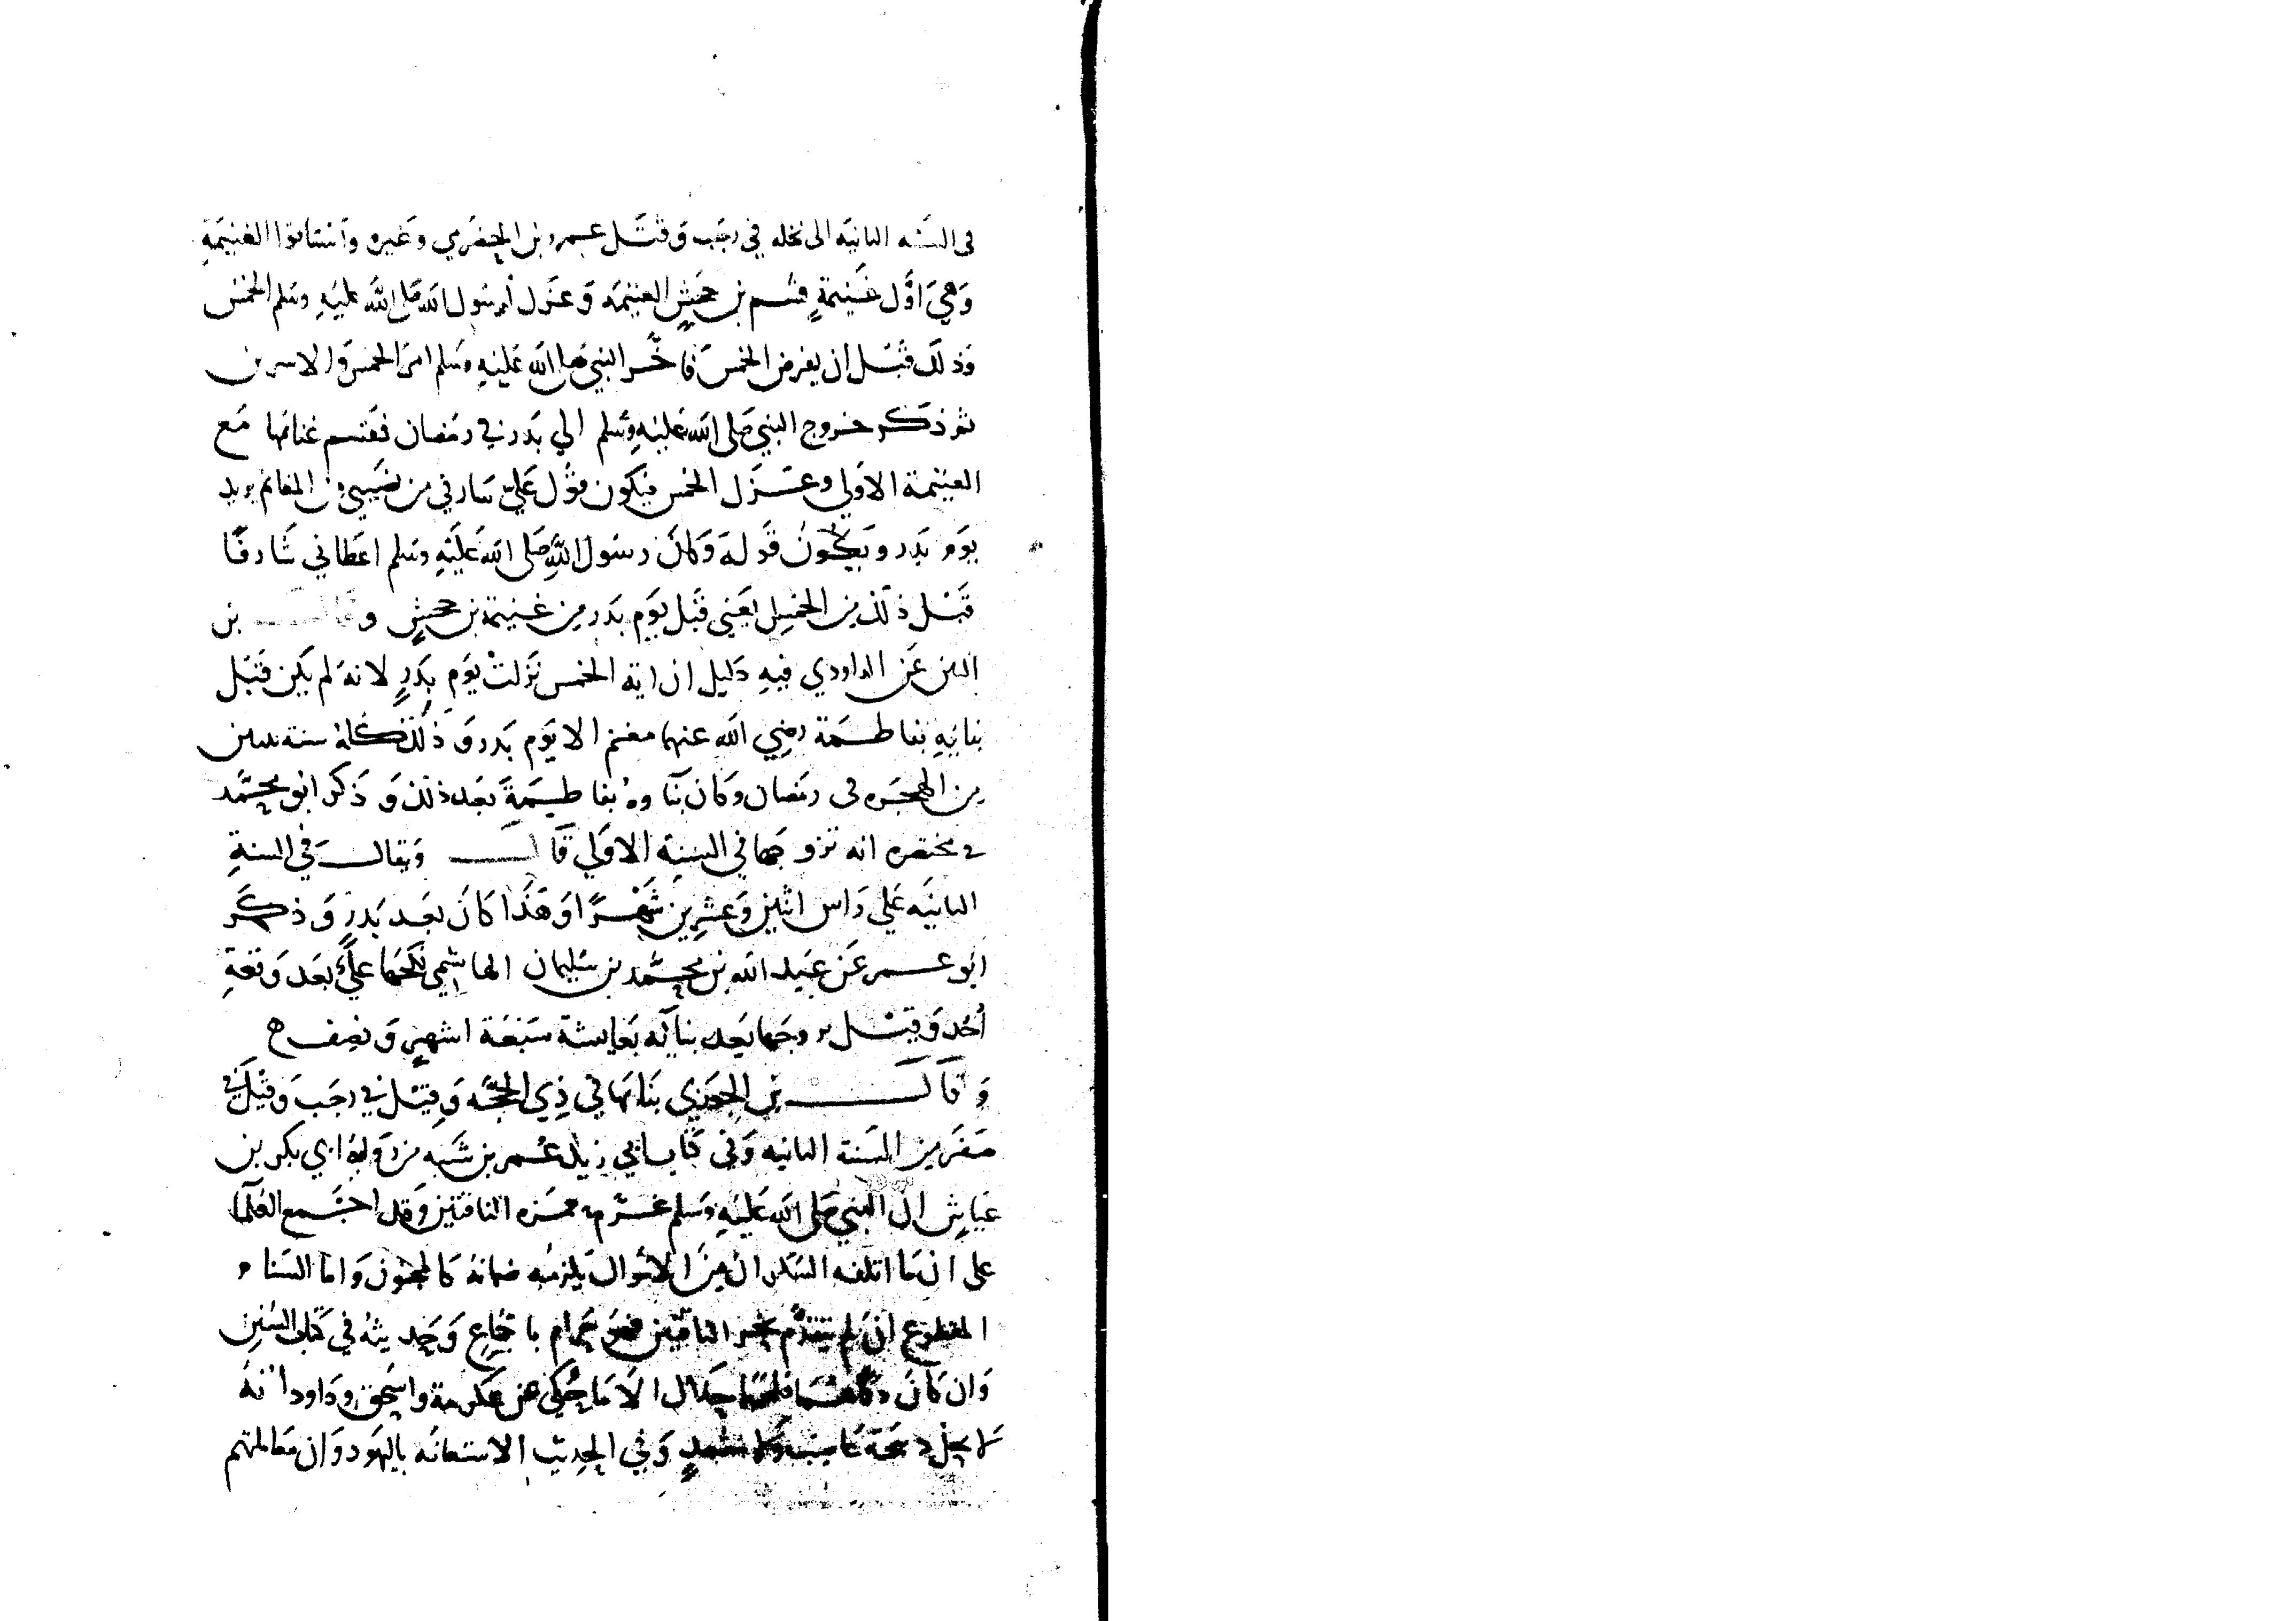 في السنه الثانيه الى نخله في رجب وقتل عمرو بن الحضرمي وغيره واستاقوا الغنيمة
وهي اول غنيمة قسم بن جحش الغنيمه وعزل لرسول الله صلى الله عليه وسلم الخمس
وذلك قبل ان يفرض الخمس فاخر النبي صلى الله عليه وسلم امر الخمس والاسرين
ثم ذكر خروج النبي صلى الله عليه وسلم الي بدر في رمضان فقسم غنائمها مع
الغنيمة الاولي وعزل الخمس فيكون قول علي شارفي من نصيبي من المغانم يريد
يوم بدر ويكون قوله وكان رسول الله صلى الله عليه وسلم اعطاني شارفا
قبل ذلك من الخمس يعني قبل يوم بدر من غنيمة بن جحش وقال بن
التين عن الداودي فيه دليل ان اية الخمس نزلت يوم بدر لانه لم يكن قبل
بنائه بفاطمة رضي الله عنهما مغنم الا يوم بدر وذلك كله سنة سنتين
من الهجره في رمضان وكان بناوه بفاطمة بعد ذلك وذكر ابو محمد
في مختصره انه تزوجها في السنة الاولي قال ويقال في السنة
الثانيه علي راس اثنين وعشرين شهرا وهذا كان بعد بدر وذكر
ابو عمر عن عبيد الله بن محمد بن سليمان الهاشمي نكحها علي بعد وقعة
احد وقيل تزوجها بعد بنائه بعايشة سبعة اشهر ونصف ه
وقال بن الجوزي بنا بها في ذي الحجه وقيل في رجب وقيل في
صفر من السنة الثانيه وفي كتاب ابي زيد عمر بن شبه من رواية ابي بكر بن
عياش ان النبي صلى الله عليه وسلم غرم حمزه الناقتين وقد اجمع العلما
على ان ما اتلفه السكران من الاموال يلزمه ضمانه كالمجنون واما السنام
المقطوع ان لم يتقدم نحر الناقتين فهو حرام باجماع وحديثه في كتاب السنن
وان كان ذكاهما فلحمها حلال الا ما حكي عن عكرمة واسحق وداود انه
لا يحل ذبيحة غاصب وفي الحديث الاستعانه باليهود وان معاملتهم